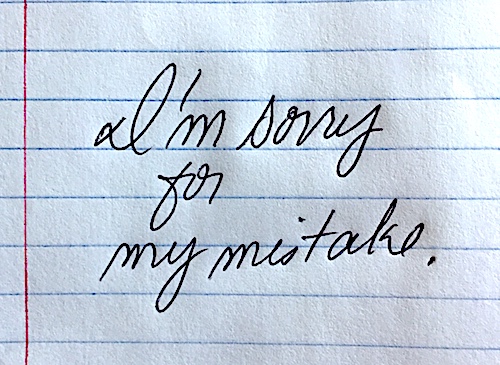 I'm sorry
for
my mistake.